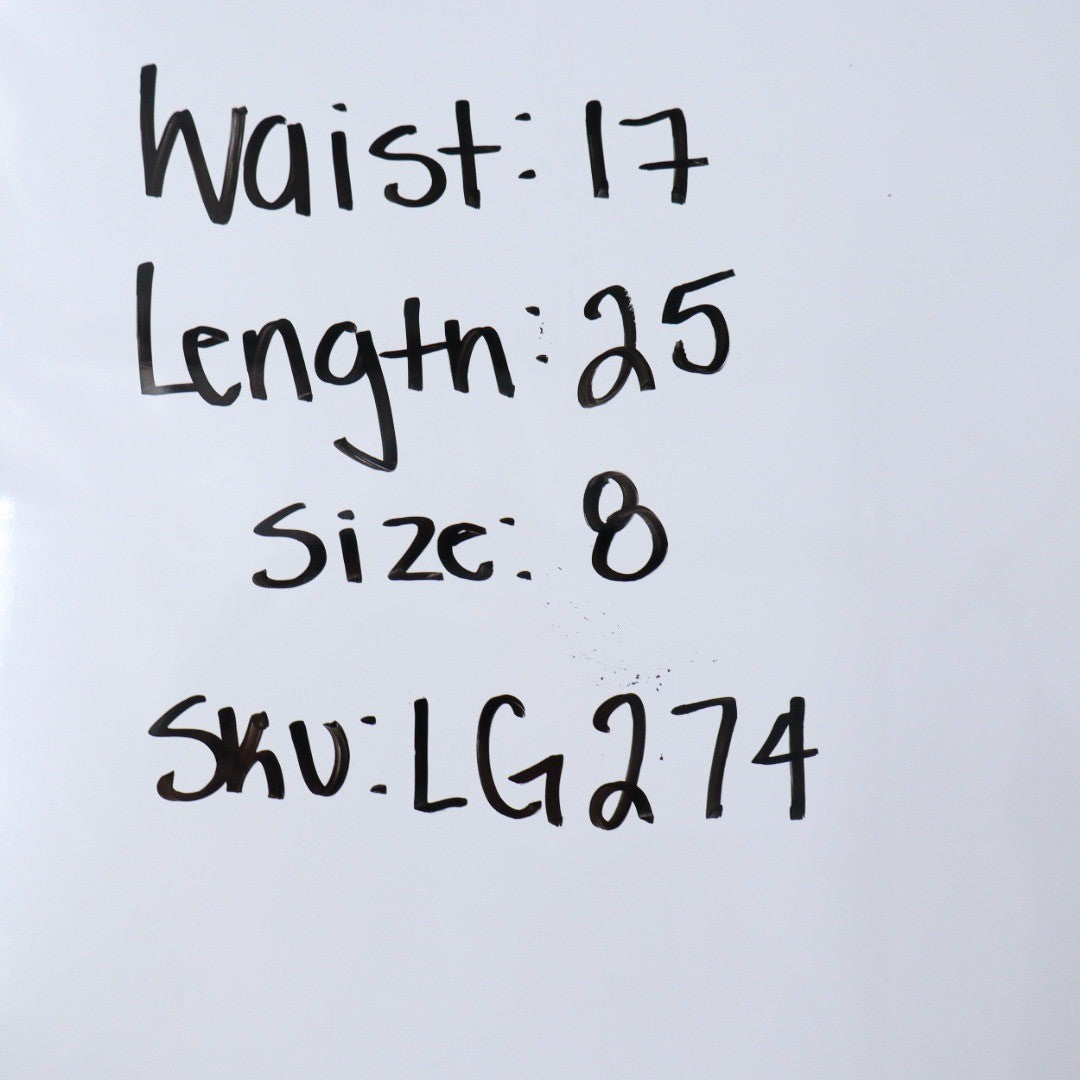 Waist: 17
Length: 25
Size: 8
SKU: LG274